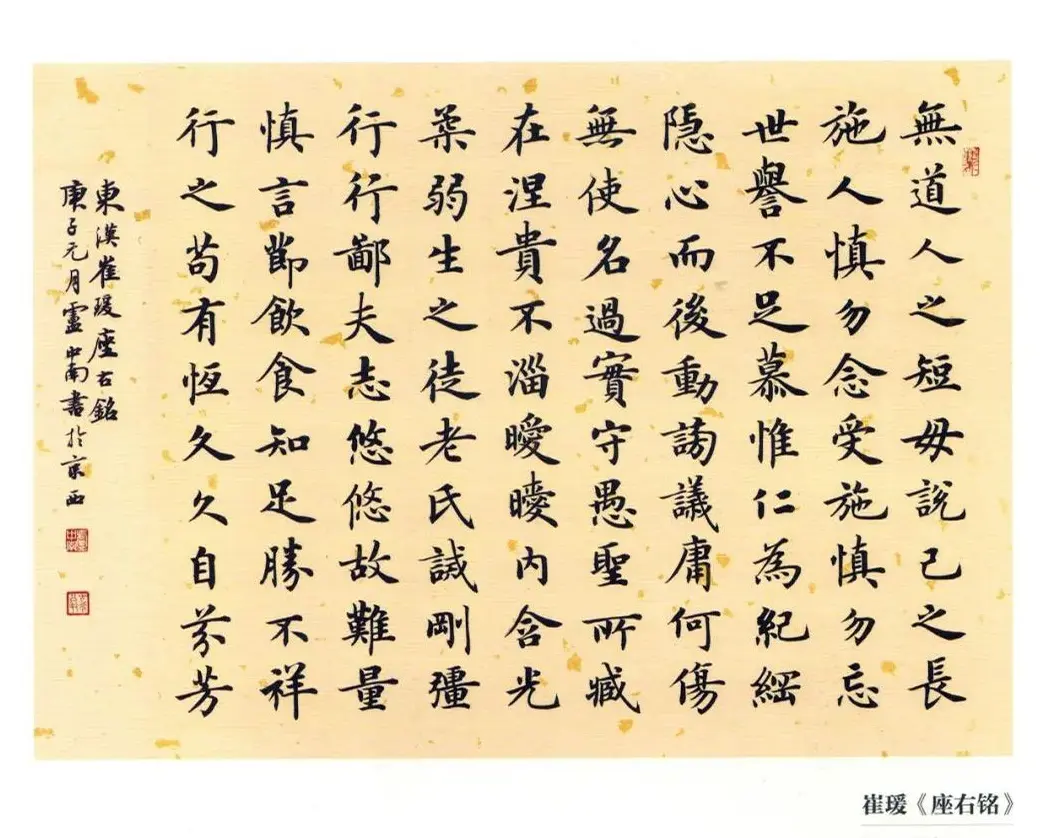 無道人之短毋說己之長
施人慎勿念受施慎勿忘
世譽不足慕惟仁為紀綱
隱心而後動謗議庸何傷
無使名過實守愚聖所臧
在涅貴不淄曖曖内含光
柔弱生之徒老氏誡剛彊
行行鄙夫志悠悠故難量
慎言節飲食知足勝不祥
行之苟有恆久久自芬芳
東漢崔瑗座右銘
庚子元月靈中南書於京西
崔瑗《座右铭》